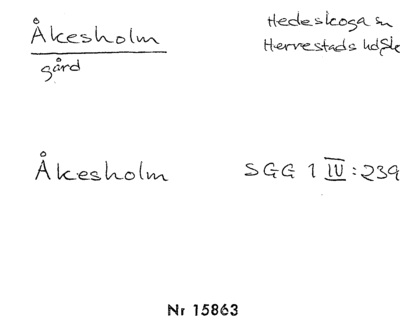 Åkesholm
gård
Hedeskoga sn
Herrestads hd Sk
Åkesholm
SGG 1 IV:239
Nr 15863